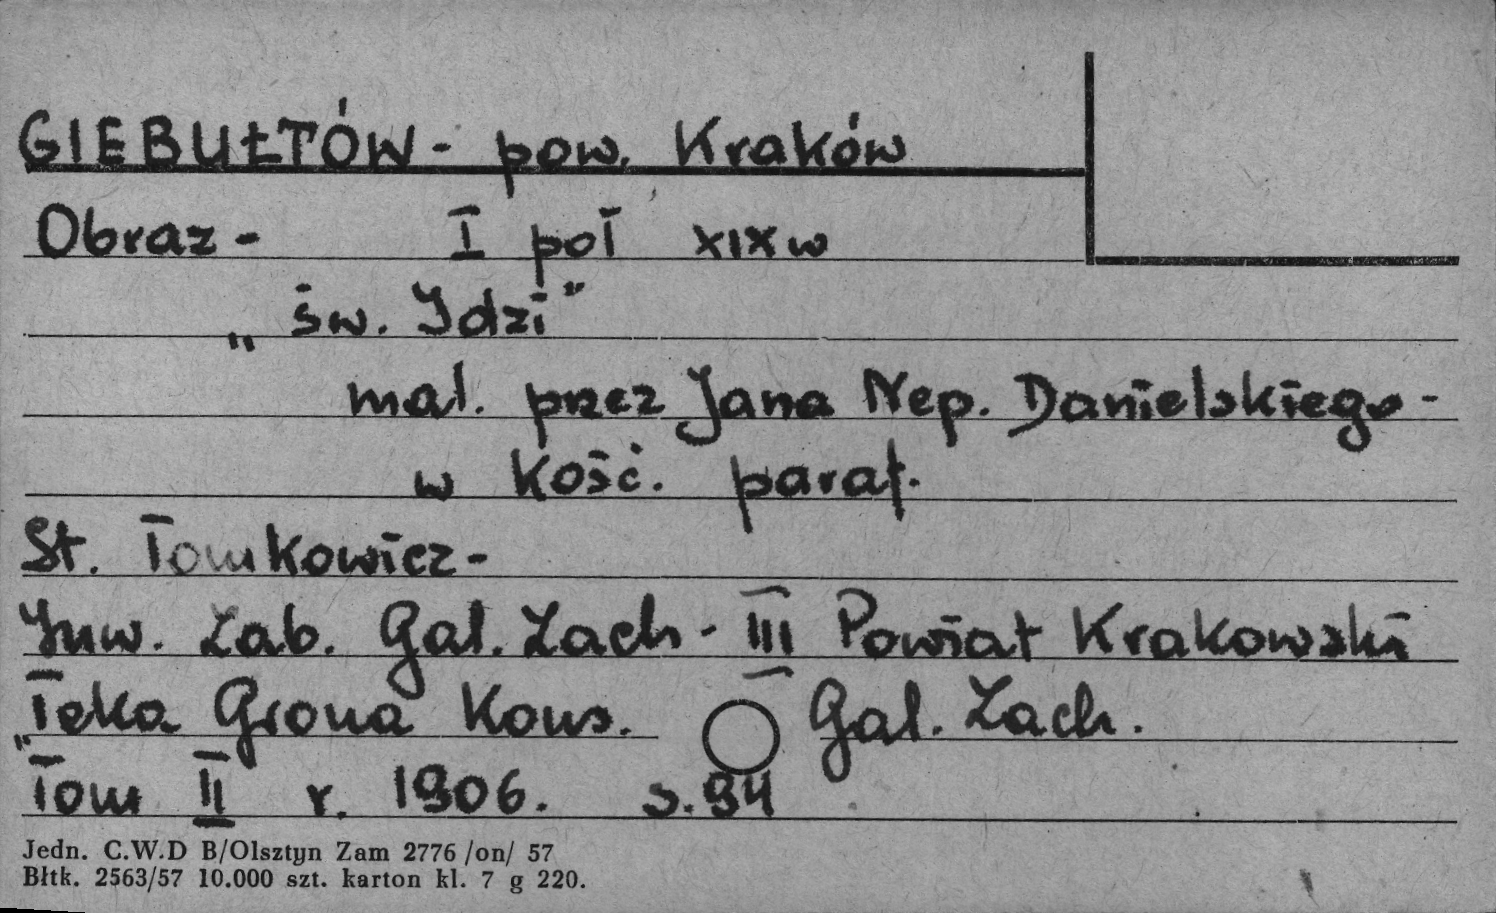 GIEBUŁTÓW - pow. Kraków
Obraz - I poł XIX w
„św. Idzi"
mal. przez Jana Nep. Danielskiego -
w kość. paraf.
St. Tomkowicz -
Inw. Zab. Gal. Zach - III Powiat Krakowski
„Teka Grona Kons. Gal. Zach.
Tom II r. 1906. s. 94
Jedn. C.W.D B/Olsztyn Zam 2776 /on/ 57
Błtk. 2563/57 10.000 szt. karton kl. 7 g 220.